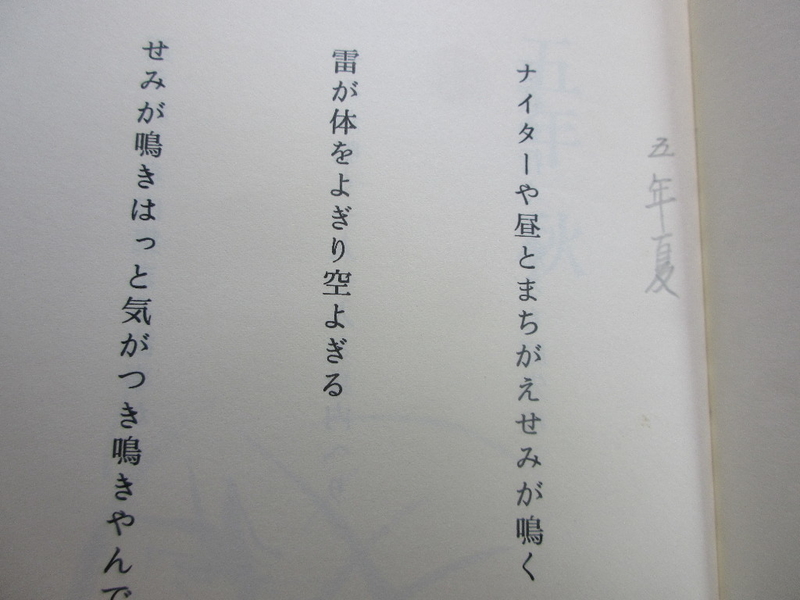 五年夏
ナイターや昼とまちがえせみが鳴く
雷が体をよぎり空よぎる
せみが鳴きはっと気がつき鳴きやんで